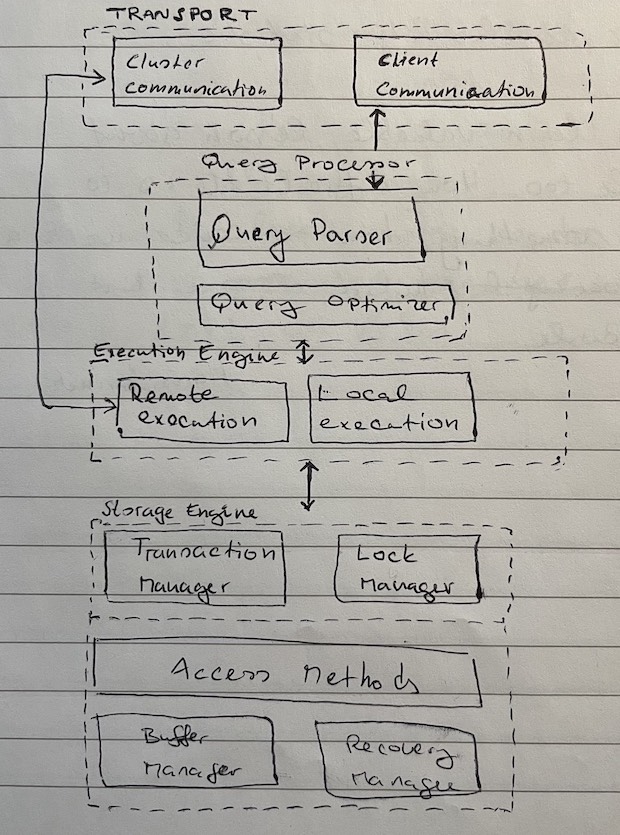 TRANSPORT
Cluster
communication
Client
Communication
Query Processor
Query Parser
Query Optimizer
Execution Engine
Remote
execution
Local
execution
Storage Engine
Transaction
Manager
Lock
Manager
Access Methods
Buffer
Manager
Recovery
Manager